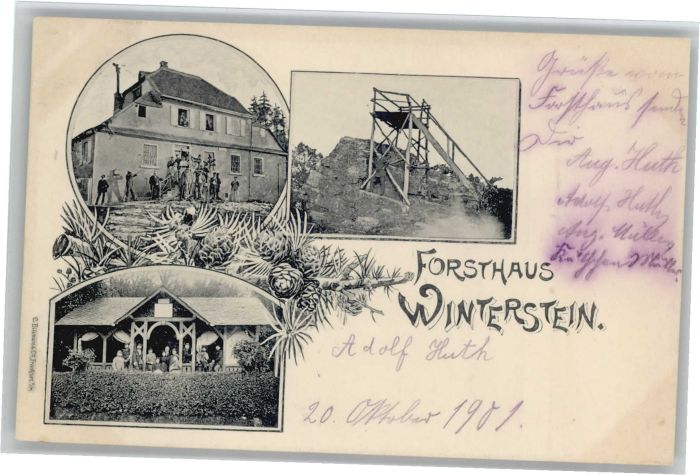 Grüße vom
Forsthaus senden
Dir
Aug. Huth
Adolf Huth
Aug. Müller
Käthchen Müller
FORSTHAUS
WINTERSTEIN.
Adolf Huth
20. Oktober 1901.